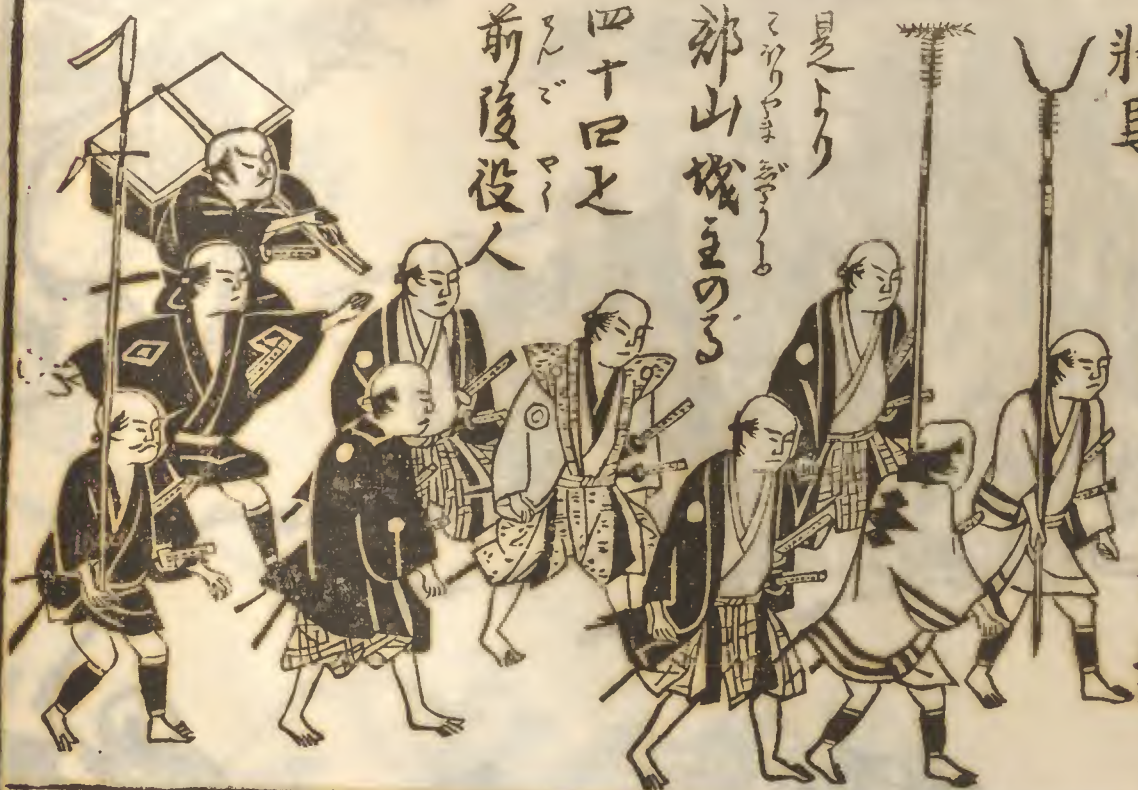 見より
こほりやま じやうしゆ
郡山城主のる
四十四
ぜんご やく
前後役人